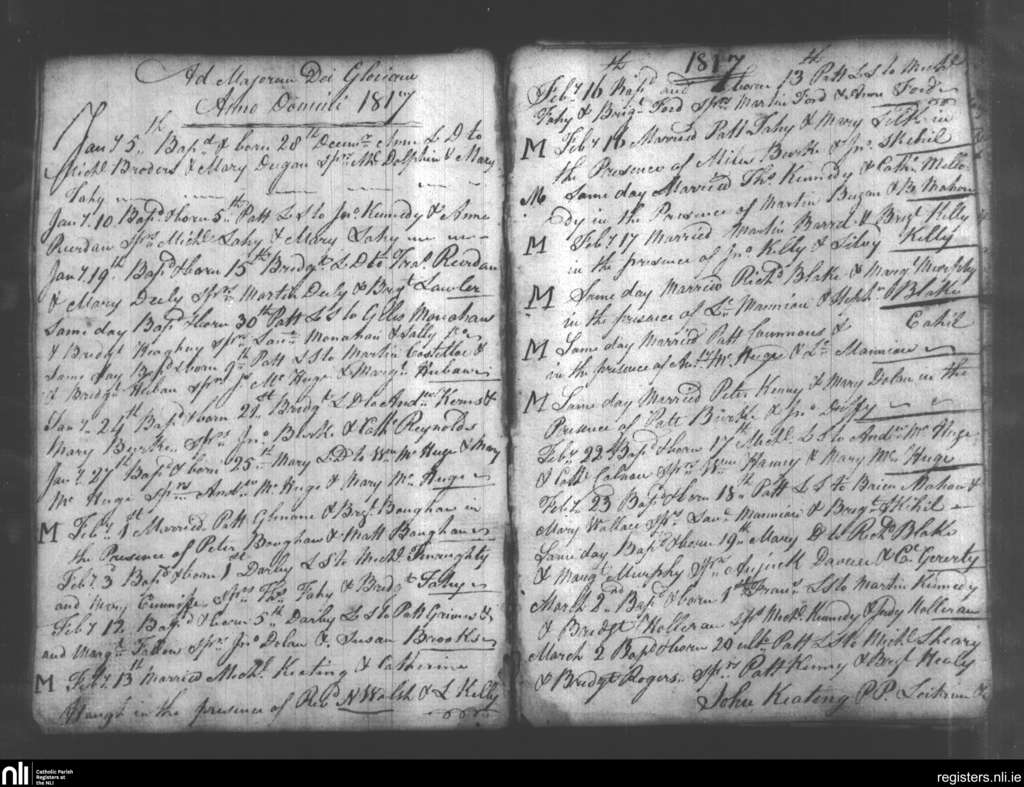 Ad Majorem Dei Gloriam
Anno Domini 1817
Jany 5th Bapd & born 28th Decemr Anne L D to
Michl Broders & Mary Dugan Sprs Ml Dolphin & Mary
Fahy
Jany 10 Bapd & born 5th Patt L S to Jno Kennedy & Anne
Reerdan Sprs Michl Lahy & Mary Lahy
Jany 19th Bapd & born 15th Bridgt L D to Fras Reerdan
& Mary Duly Sprs Martin Duly & Brigt Lawler
Same day Bapd & born 30th Patt L S to Giles Monahan
& Bridgt Sprs Laue Monahan & Sally
Same day Bapd & born 9th Patt L S to Martin Costelloe &
& Bridgt Ruban Sprs Js Mc Huge & Margt Ruban
Jany 24th Bapd & born 21st Bridgt L D to Andw Kerns &
Mary Burke Sprs Jno Burke & Cath Reynolds
Jany 27th Bapd & born 25th Mary L D to Wm Mc Huge & Mary
Mc Huge Sprs Andw Mc Huge & Mary Mc Huge
M Feby 1st Married Patt Glenane & Brigt Baughan in
the Presence of Peter Baughan & Matt Baughan
Feby 3 Bapd & born 1st Darby L S to Michl Furoughty
and Mary Cunniffe Sprs Thos Fahy & Bridgt Fahy
Feby 12 Bapd & born 5th Darby L S to Patt Grimes &
and Margt Fallon Sprs Jno Dolan & Susan Brooks
M Feby 13th Married Michl Keating & Catherine
Haugh in the presence of Revd N Walsh & L Kelly
1817
Feby 16th Bapd and born 13th Patt L S to Michl
Fahy & Brigt Ford Sprs Martin Ford & Anne Ford
M Feby 16 Married Patt Fahy & Mary in
the Presence of Miles Burke & Jno Skehil
M Same day Married Thos Kennedy & Cath Mello
dy in the Presence of Martin Bugan & Br Mahon
M Feby 17 Married Martin Barrel & Brigt Kelly
in the presence of Jno Kelly & Silvy Kelly
M Same day Married Richd Blake & Margt Murphy
in the presence of Lr Mannian & Stephn Blake
M Same day Married Patt Connnous & Cahil
in the presence of Andw Mc Huge & Lr Mannian
M Same day Married Peter Kenny & Mary Dolan in the
Presence of Patt Burke & Jno Duffy
Feby 22 Bapd & born 17th Michl L S to Andw Mc Huge
& Cath Colman Sprs Wm Haney & Mary Mc Huge
Feby 23 Bapd & born 18th Patt L S to Brien Mahon &
Mary Wallace Sprs Laue Mannian & Brigt Skehil
Same day Bapd & born 19th Mary D to Richd Blake
& Margt Murphy Sprs Davies & Ct Gererty
March 2nd Bapd & born 1st Frans L S to Martin Kennedy
& Bridgt Holleran Sprs Michl Kennedy & Judy Holleran
March 2 Bapd & born 29 ult Patt L S to Michl Sheary
& Bridgt Rogers Sprs Patt Kenny & Brigt Healy
John Keating P.P.
nli
Catholic Parish
Registers at
the NLI
registers.nli.ie